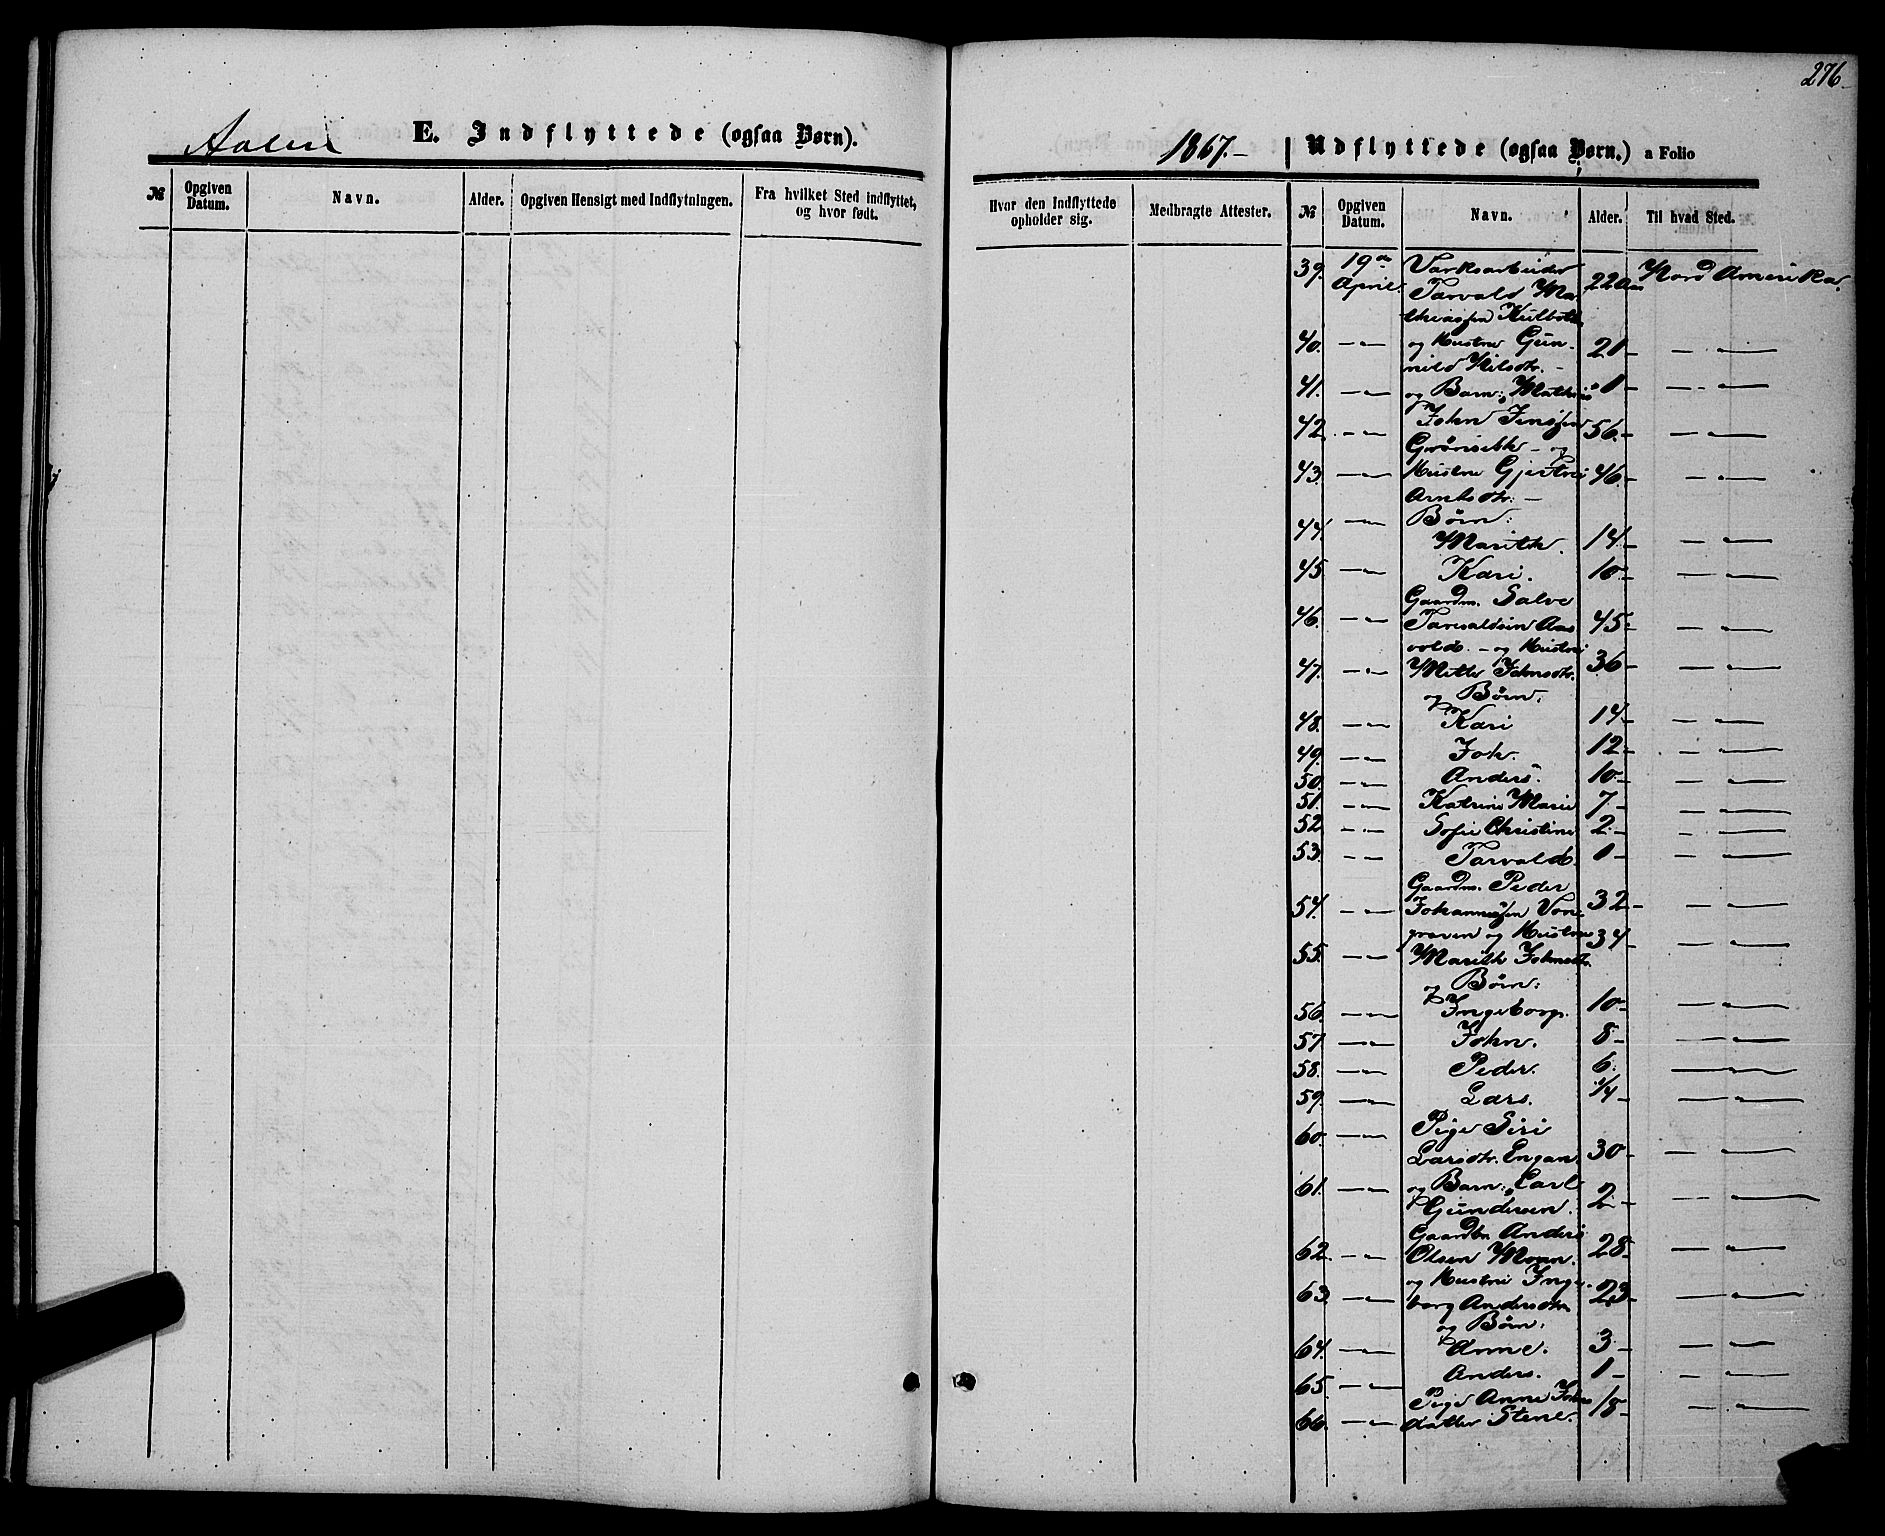 276
Aalen
E. Indflyttede (ogsaa Børn).
1867.-
Udflyttede (ogsaa Børn.) a Folio
№
Opgiven Datum.
Navn.
Alder.
Opgiven Hensigt med Indflytningen.
Fra hvilket Sted indflyttet, og hvor født.
Hvor den Indflyttede opholder sig.
Medbragte Attester.
№
Opgiven Datum.
Navn.
Alder.
Til hvad Sted.
39. 19de April Tarvald 22 Aar Nord Amerika.
40. — og Hustru Gunnild Nilsdtr. - 21 - —
41. — og Barn: Mathias 1 - —
42 — John Jenssen - og 56 - —
43. — Hustru Arntsdtr: - 46 - —
44. — Børn: Marith. 14 - —
45 — Kari. 10 - —
46. — Gaardm. Salve - og Hustru 45 - —
47. — Mette Johnsdtr. og Børn: 36 - —
48. — Kari 14 - —
49. — Joh. 12 - —
50. — Anders. 10 - —
51. — Katrine Marie 7 - —
52 — Sofie Christine 2 - —
53. — Tarvald. 1 - —
54. — Gaardm. Peder Johannessen Vongraven og Hustru 32 - —
55. — Marith Johnsdtr. og Børn: 34 - —
56. — Ingeborg. 10 - —
57. — John. 8 - —
58. — Peder. 6. —
59. — Lars. 1/4 - —
60. — Pige Siri Larsdtr. Engan. 30 - —
61. — og Barn: Carl Gundersen. 2 - —
62. — Anders Olsen Moan. 28 - —
63. — og Hustru Ingeborg Andersdtr og Børn: 23 - —
64. — Anne. 3 - —
65. — Anders. 1 - —
66. — Pige Anne Johnsdatter Stene. 18 - —